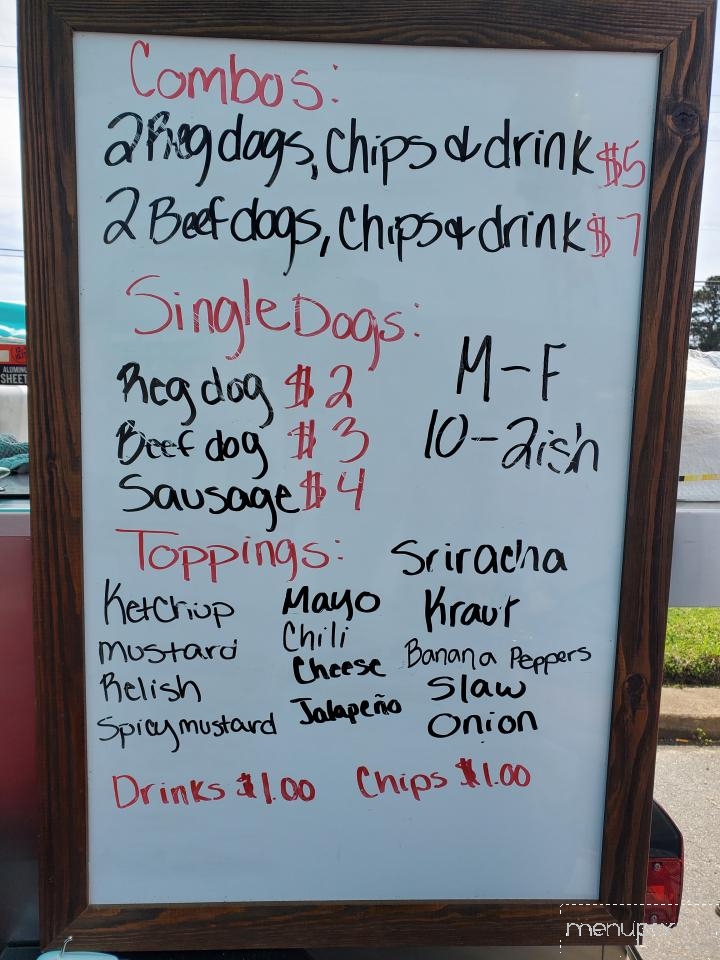 Combos:
2 Reg dogs, Chips & drink $5
2 Beef dogs, Chips & drink $7
Single Dogs:
Reg dog $2
Beef dog $3
Sausage $4
M-F
10-2ish
Toppings:
Ketchup
mustard
Relish
Spicy mustard
Mayo
Chili
Cheese
Jalapeño
Sriracha
Kraut
Banana Peppers
Slaw
Onion
Drinks $1.00 Chips $1.00
ALUMINUM
SHEET
menupix